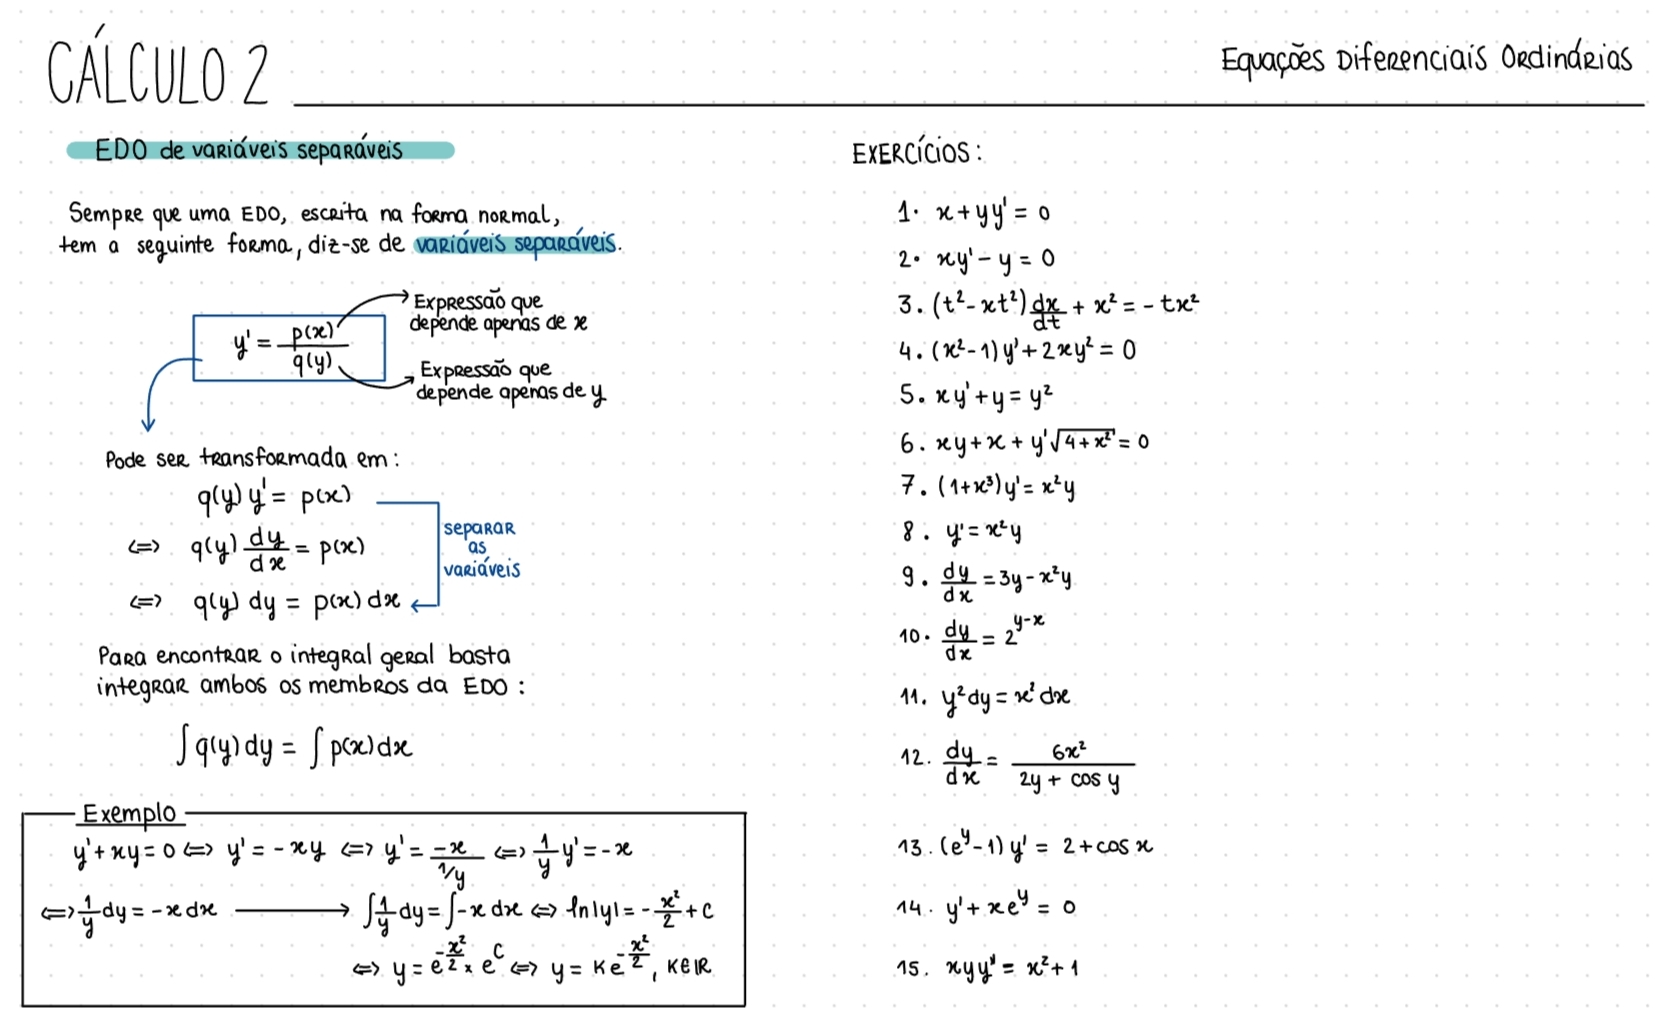 CÁLCULO 2
Equações Diferenciais Ordinárias
EDO de variáveis separáveis
Sempre que uma EDO, escrita na forma normal,
tem a seguinte forma, diz-se de variáveis separáveis.
y' = p(x)/q(y)
Expressão que
depende apenas de x
Expressão que
depende apenas de y
Pode ser transformada em:
q(y) y' = p(x)
⇔ q(y) dy/dx = p(x)
⇔ q(y) dy = p(x) dx
separar
as
variáveis
Para encontrar o integral geral basta
integrar ambos os membros da EDO:
∫ q(y) dy = ∫ p(x) dx
Exemplo
y' + xy = 0 ⇔ y' = -xy ⇔ y' = -x/(1/y) ⇔ 1/y y' = -x
⇔ 1/y dy = -x dx ⟶ ∫ 1/y dy = ∫ -x dx ⇔ ln|y| = -x²/2 + C
⇔ y = e^(-x²/2) × e^C ⇔ y = Ke^(-x²/2), K∈ℝ
EXERCÍCIOS:
1. x + yy' = 0
2. xy' - y = 0
3. (t² - xt²) dx/dt + x² = -tx²
4. (x² - 1) y' + 2xy² = 0
5. xy' + y = y²
6. xy + x + y'√(4 + x²) = 0
7. (1+x³) y' = x²y
8. y' = x²y
9. dy/dx = 3y - x²y
10. dy/dx = 2^(y-x)
11. y² dy = x² dx
12. dy/dx = 6x²/(2y + cos y)
13. (e^y - 1) y' = 2 + cos x
14. y' + xe^y = 0
15. xyy' = x² + 1